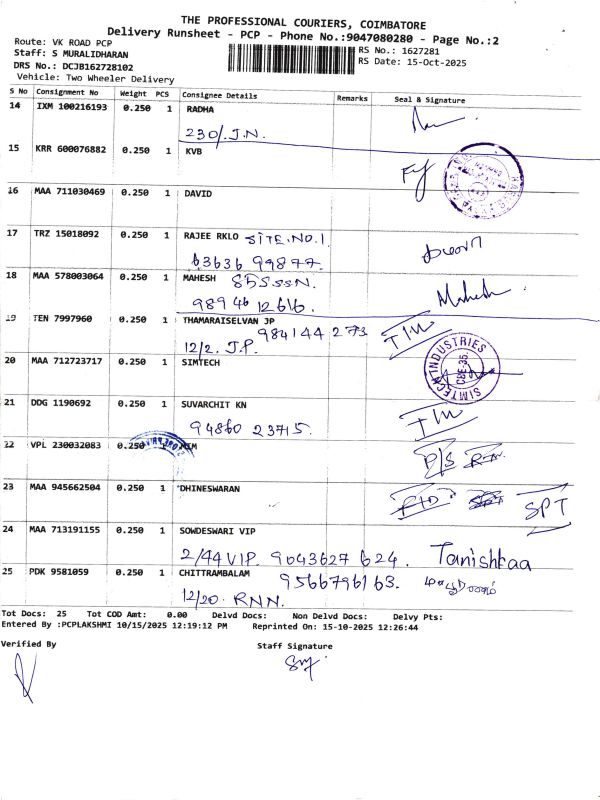 THE PROFESSIONAL COURIERS, COIMBATORE
Delivery Runsheet - PCP - Phone No.:9047080280 - Page No.:2
Route: VK ROAD PCP
Staff: S MURALIDHARAN
DRS No.: DCJB162728102
Vehicle: Two Wheeler Delivery
RS No.: 1627281
RS Date: 15-Oct-2025
S No Consignment No Weight PCS Consignee Details Remarks Seal & Signature
14 IXM 100216193 0.250 1 RADHA
230/.J.N.
15 KRR 600076882 0.250 1 KVB
16 MAA 711030469 0.250 1 DAVID
17 TRZ 15018092 0.250 1 RAJEE RKLO SITE.NO.1
63636 99877.
18 MAA 578003064 0.250 1 MAHESH 85SSSN. Mahesh
98946 12616.
19 TEN 7997960 0.250 1 THAMARAISELVAN JP
984144 273
12/2. J.P.
20 MAA 712723717 0.250 1 SIMTECH
SIMTECH INDUSTRIES CBE-35.
21 DDG 1190692 0.250 1 SUVARCHIT KN
94860 23715.
22 VPL 230032083 0.250 D/S
23 MAA 945662504 0.250 1 DHINESWARAN SPT
24 MAA 713191155 0.250 1 SOWDESWARI VIP
2/44 VIP. 9043627 624. Tanishkaa
25 PDK 9581059 0.250 1 CHITTRAMBALAM 9566796163.
12/20. RNN.
Tot Docs: 25 Tot COD Amt: 0.00 Delvd Docs: Non Delvd Docs: Delvy Pts:
Entered By :PCPLAKSHMI 10/15/2025 12:19:12 PM Reprinted On: 15-10-2025 12:26:44
Verified By Staff Signature